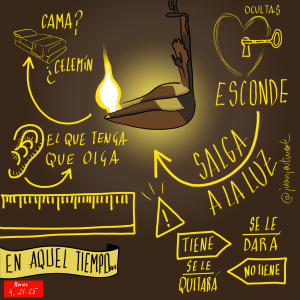 CAMA?
¿CELEMÍN
OCULTAS
ESCONDE
EL QUE TENGA
QUE OIGA
SALGA
A LA LUZ
@juanjartwork
EN AQUEL TIEMPO...
Marcos
4, 21-25
TIENE
SE LE
DARÁ
SE LE
QUITARÁ
NO TIENE